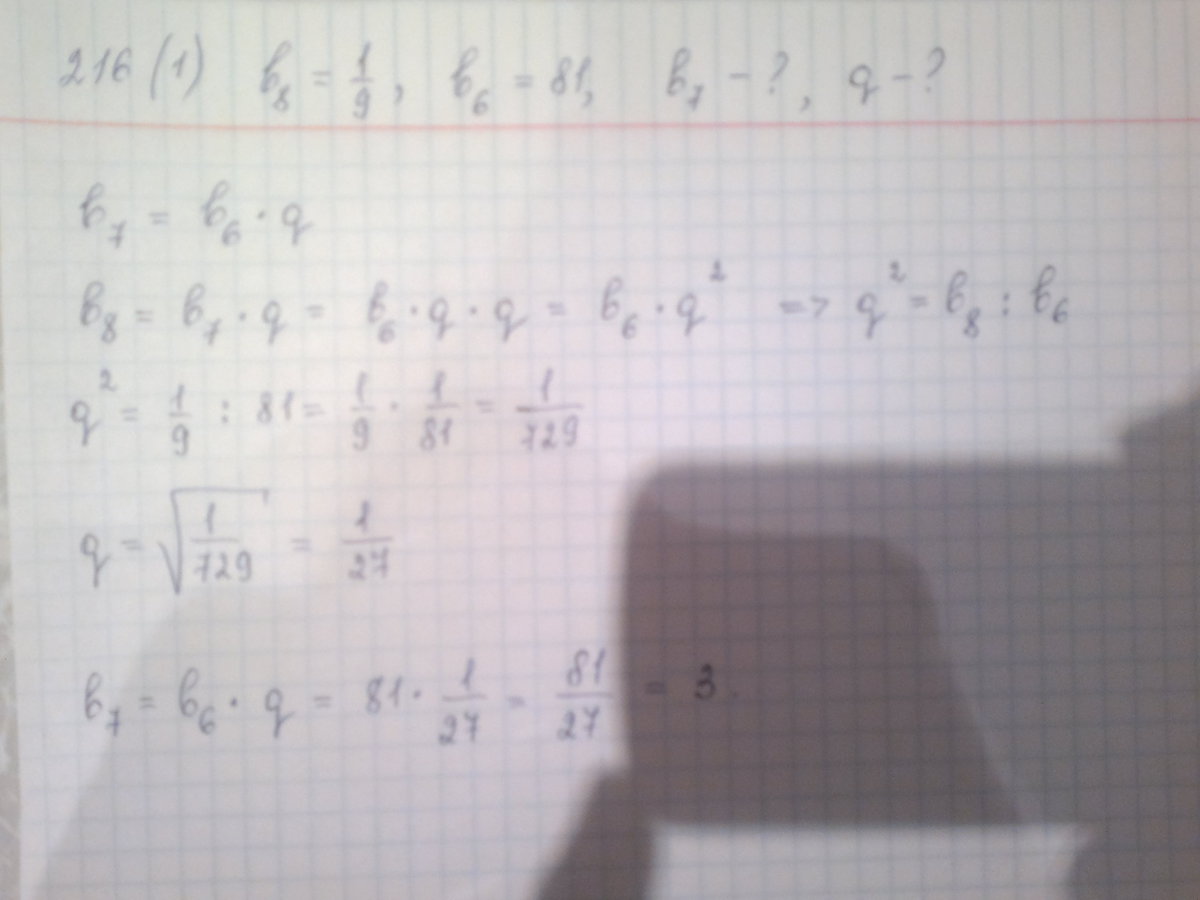 216 (1) b₈ = 1/9, b₆ = 81, b₇ - ?, q - ?
b₇ = b₆ · q
b₈ = b₇ · q = b₆ · q · q = b₆ · q² => q² = b₈ : b₆
q² = 1/9 : 81 = 1/9 · 1/81 = 1/729
q = √(1/729) = 1/27
b₇ = b₆ · q = 81 · 1/27 = 81/27 = 3.